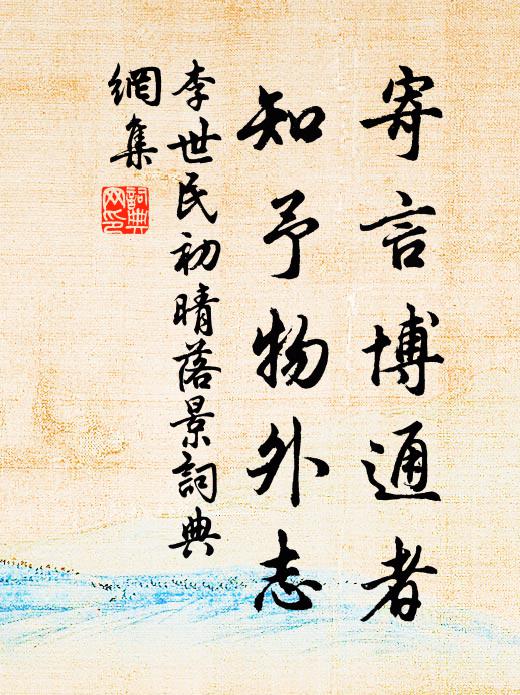 寄言博通者
知予物外志
李世民初晴落景詞典
網集
詞典
网印